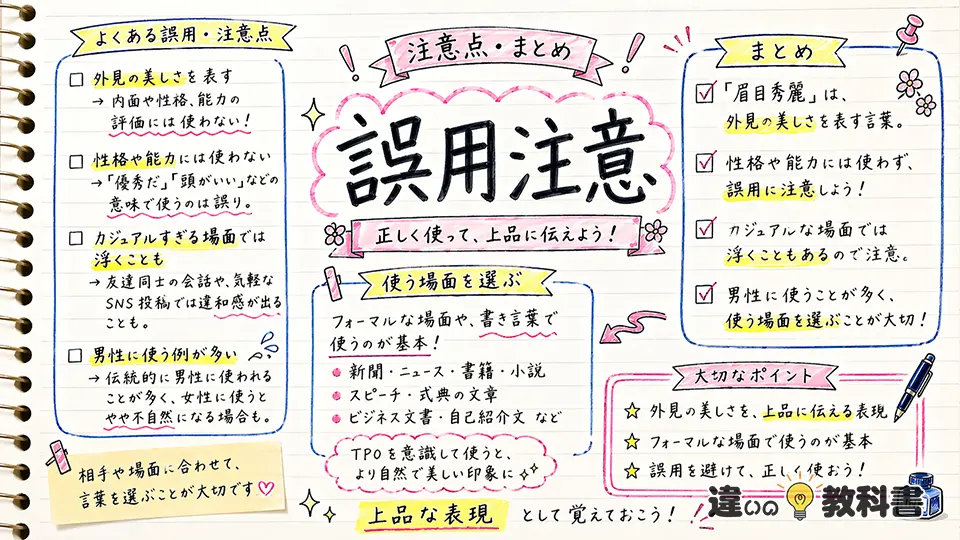 よくある誤用・注意点
外見の美しさを表す
→ 内面や性格、能力の
評価には使わない！
性格や能力には使わない
→「優秀だ」「頭がいい」などの
意味で使うのは誤り。
カジュアルすぎる場面では
浮くことも
→ 友達同士の会話や、気軽な
SNS投稿では違和感が出る
ことも。
男性に使う例が多い
→ 伝統的に男性に使われる
ことが多く、女性に使うと
やや不自然になる場合も。
相手や場面に合わせて、
言葉を選ぶことが大切です♡
注意点・まとめ
誤用注意
正しく使って、上品に伝えよう！
使う場面を選ぶ
フォーマルな場面や、書き言葉で
使うのが基本！
新聞・ニュース・書籍・小説
スピーチ・式典の文章
ビジネス文書・自己紹介文 など
TPOを意識して使うと、
より自然で美しい印象に
上品な表現 として覚えておこう！
まとめ
「眉目秀麗」は、
外見の美しさを表す言葉。
性格や能力には使わず、
誤用に注意しよう！
カジュアルな場面では
浮くこともあるので注意。
男性に使うことが多く、
使う場面を選ぶことが大切！
大切なポイント
☆ 外見の美しさを、上品に伝える表現
☆ フォーマルな場面で使うのが基本
☆ 誤用を避けて、正しく使おう！
違いの教科書